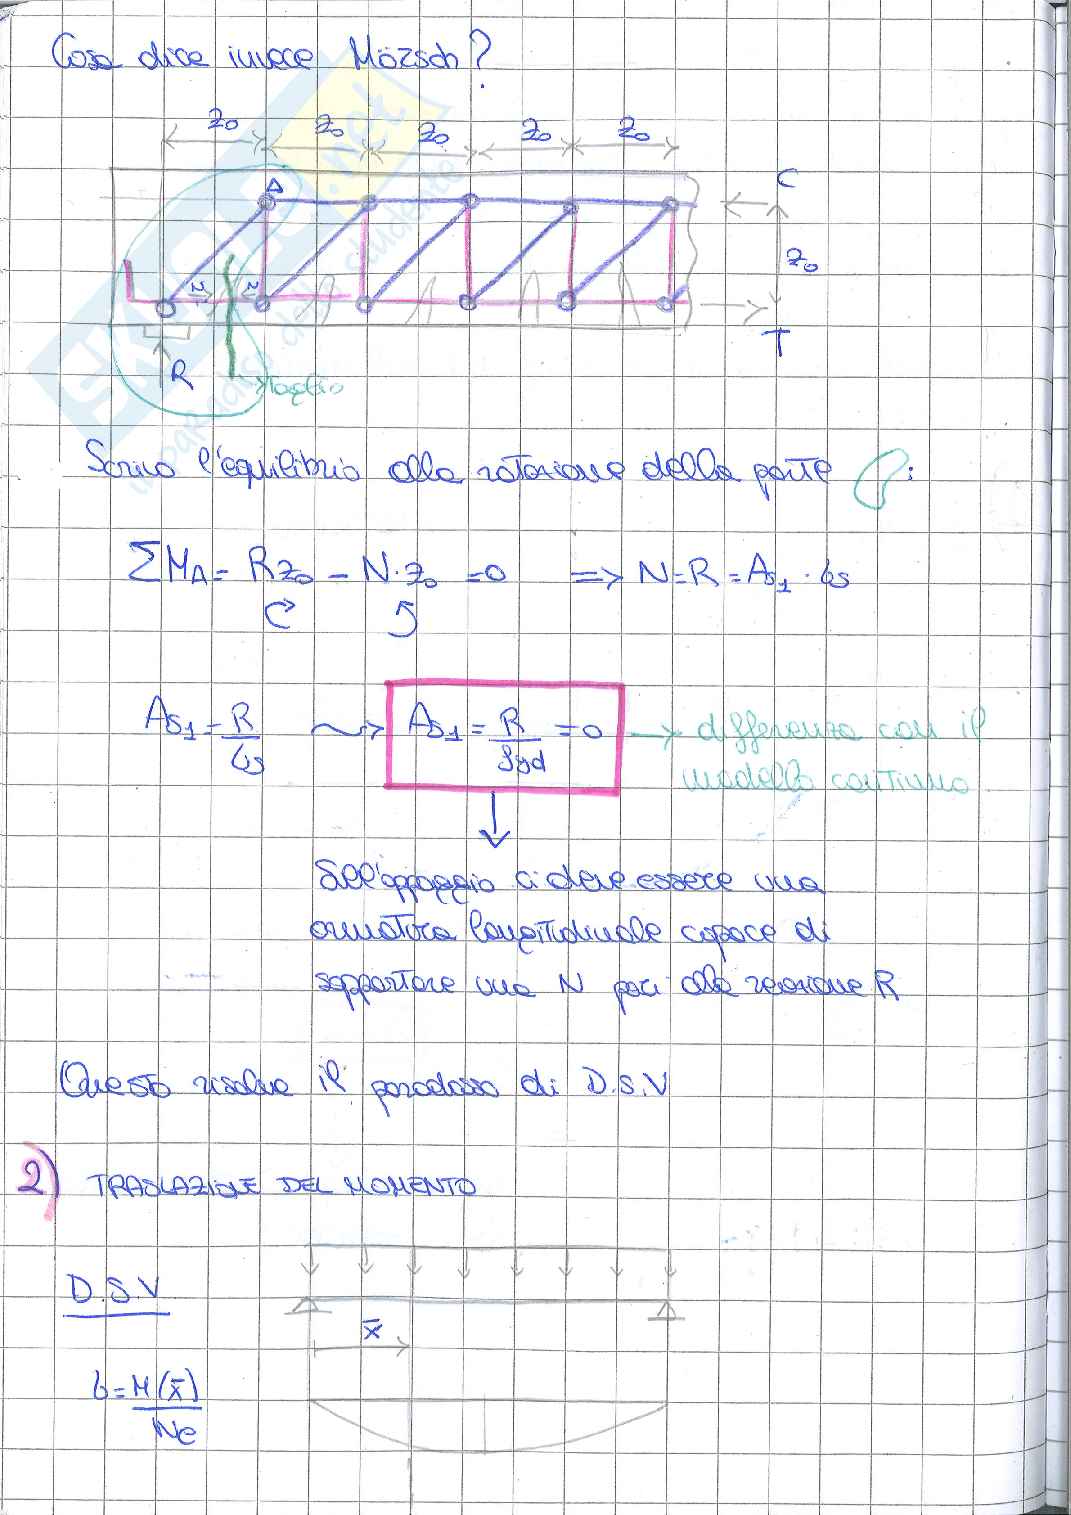 Cosa dice invece Mörsch?
z₀ z₀ z₀ z₀ z₀
A
C
z₀
N N
T
R
taglio
Scrivo l'equilibrio alla rotazione della parte :
ΣM_A = Rz₀ − N·z₀ = 0 => N = R = A_s1 · σs
A_s1 = R/σs A_s1 = R/fyd = 0 → differenza con il
modello continuo
All'appoggio ci deve essere una
armatura longitudinale capace di
sopportare una N pari alla reazione R
Questo risolve il paradosso di D.S.V
2) TRASLAZIONE DEL MOMENTO
D.S.V
x̄
σ = M(x̄)/We
SKUOLA.net
il paradiso dello studente